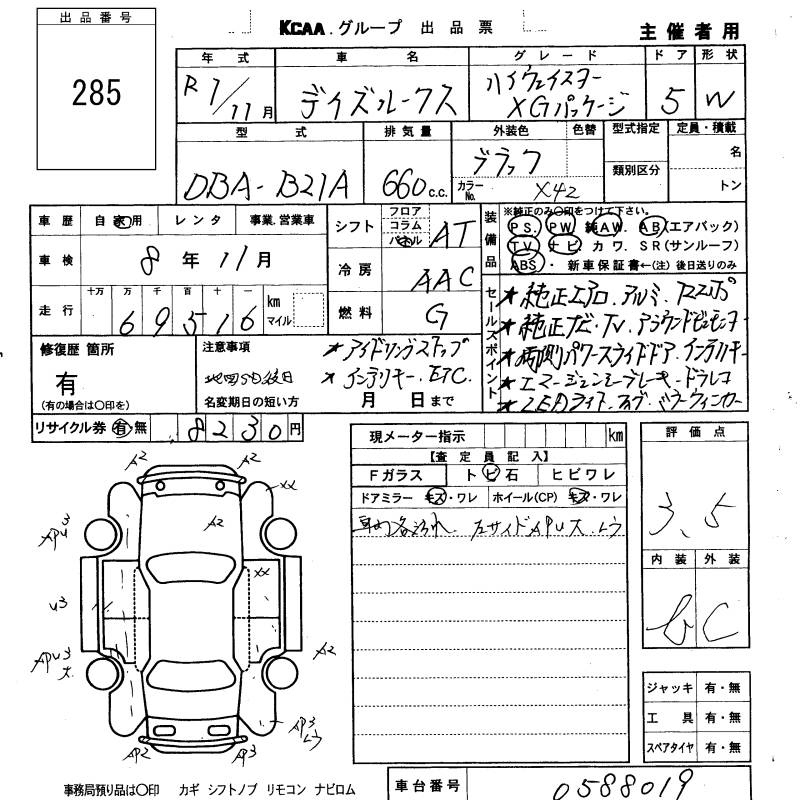 出品番号
285
KCAA.グループ 出品票
主催者用
年式 車名 グレード ドア 形状
R 1/11月 デイズルークス ハイウェイスター XGパッケージ 5 W
型式 排気量 外装色 色替 型式指定 定員・積載
DBA-B21A 660c.c. ブラック カラーNo. X42 類別区分 名 トン
車歴 自家用 レンタ 事業.営業車
車検 8年11月
走行 十万 万 千 百 十 一 km マイル
69516
シフト フロア コラム パネル AT
冷房 AAC
燃料 G
装備品 ※純正のみ○印をつけて下さい。
PS. PW 純AW. AB(エアバック)
TV ナビ カワ. SR(サンルーフ)
ABS・ 新車保証書←(注)後日送りのみ
セールスポイント
★純正エアロ.アルミ.
★純正ナビ.TV.アラウンドビューモニター
★両側パワースライドドア.インテリキー
★エマージェンシーブレーキ.ドラレコ
★LEDライト.フォグ.ドアミラーウィンカー
修復歴 箇所
有
(有の場合は○印を)
注意事項
★アイドリングストップ
★インテリキー.ETC.
地図SD後日
名変期日の短い方 月 日まで
リサイクル券 有 無 8230円
現メーター指示 km
【査定員記入】
Fガラス トビ石 ヒビワレ
ドアミラー キズ・ワレ ホイール(CP) キズ・ワレ
車内各汚れ. 左サイドAPU大.
評価点
3.5
内装 外装
b C
ジャッキ 有・無
工具 有・無
スペアタイヤ 有・無
A2 A2
XX
A2
APU3
XX
U3
APU3 大.
A2
AP3
AP2 AP3
事務局預り品は○印 カギ シフトノブ リモコン ナビロム
車台番号 0588019